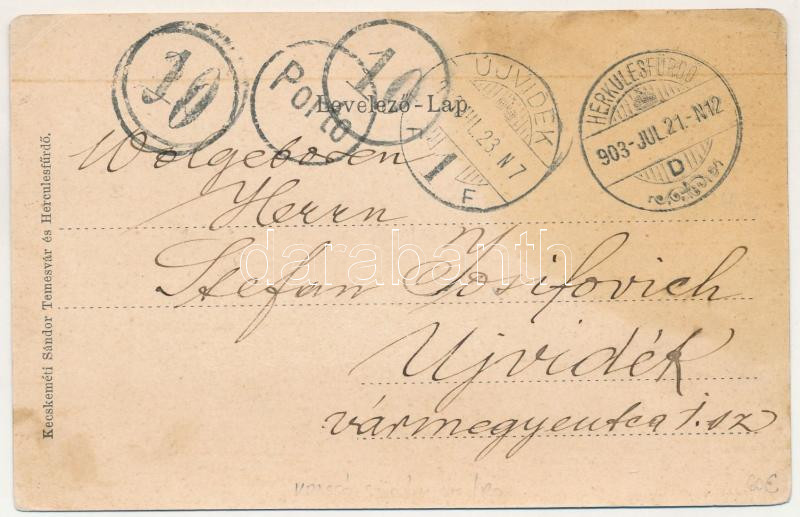 10
Porto
10
ÚJVIDÉK
JUL. 23. N 7
1
F
HERKULESFÜRDŐ
903-JUL 21.-N12
D
Levelező-Lap
Wolgeboren
Herrn
Stefan Josifovich
Ujvidék
vármegyeutca 1. sz
Kecskeméti Sándor Temesvár és Herculesfürdő.
darabanth
60€